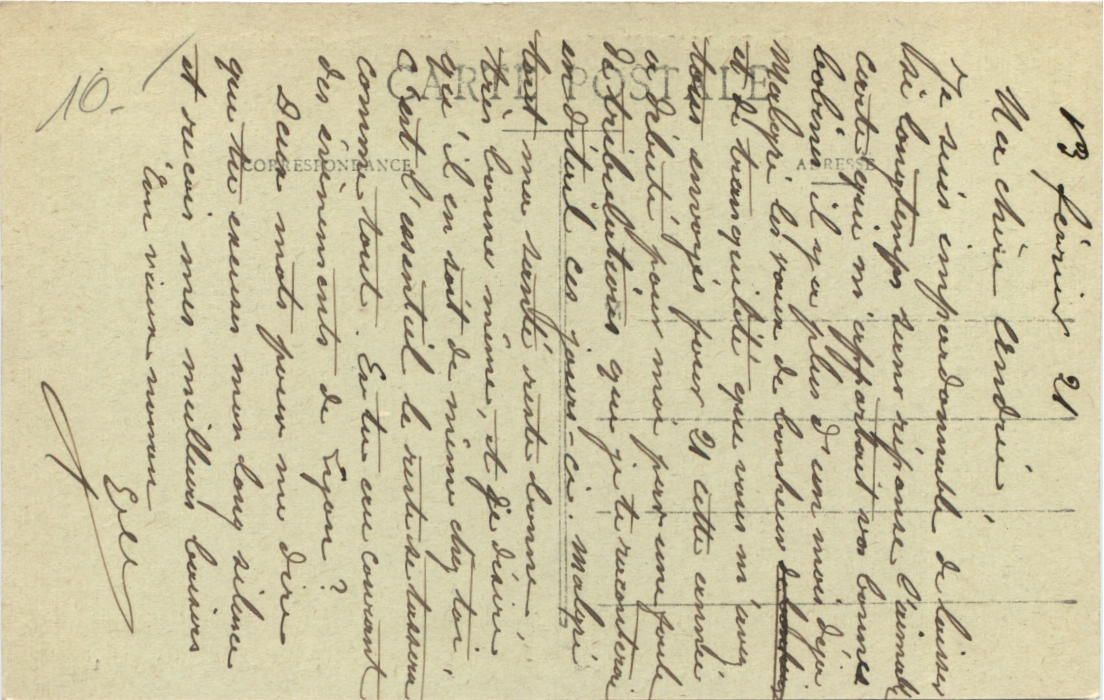 CARTE POSTALE
CORRESPONDANCE
ADRESSE
10.-
13 février 21
Ma chère Andrée
Je suis impardonnable de laisser
si longtemps sans réponse l'aimable
carte qui m'apportait vos bonnes
il y a plus d'un mois déjà
Malgré les vœux de bonheur
et de tranquilité que vous m'avez
tous envoyés pour 21 cette année
a débuté pour moi par une foule
de tribulations que je te raconterai
en détail ces jours-ci. Malgré
tout ma santé reste bonne,
très bonne même, et je désire
qu'il en soit de même chez toi,
c'est l'essentiel le reste se tassera
comme tout. Es tu au courant
des évènements de Lyon ?
Deux mots pour me dire
que tu excuses mon long silence
et reçois mes meilleurs baisers